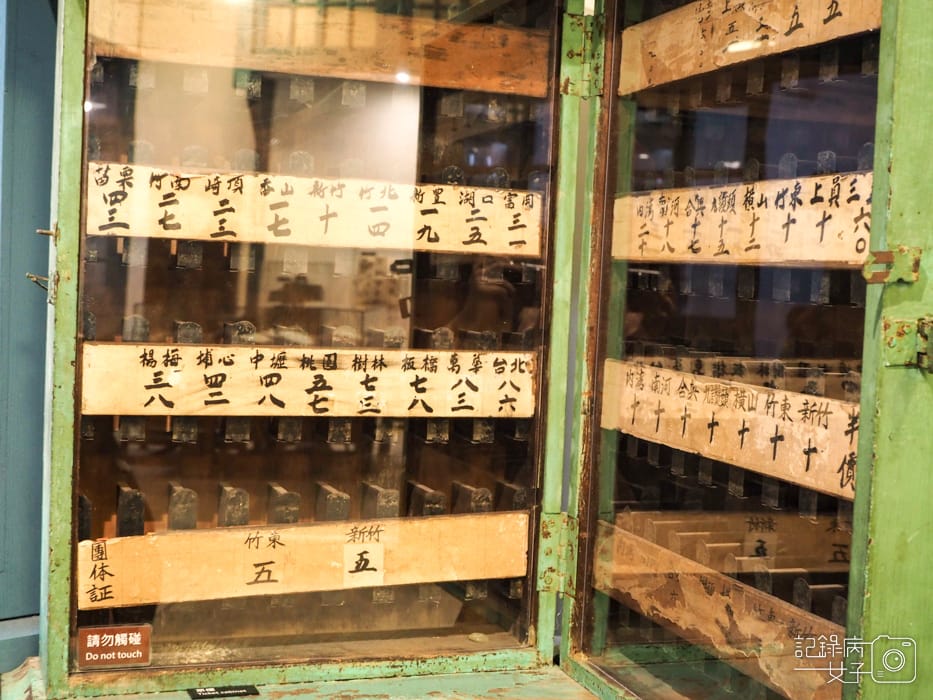 苗栗 竹南 崎頂 香山 新竹 竹北 新里 湖口 富岡
四三 二七 二三 一七 十 一四 一九 二五 三一
楊梅 埔心 中壢 桃園 樹林 板橋 萬華 台北
三八 四二 四八 五七 七三 七八 八三 八六
團体証
竹東 新竹
五 五
請勿觸碰
Do not touch
票櫃
Ticket cabinet
五 五
內湾 南河 合興 九讚頭 橫山 竹東 上員 三
二十 十八 十七 十五 十二 十 十 六〇
內湾 南河 合興 九讚頭 橫山 竹東 新竹 半價
十 十 十 十 十 十 十
新竹
五
記錄病
女子